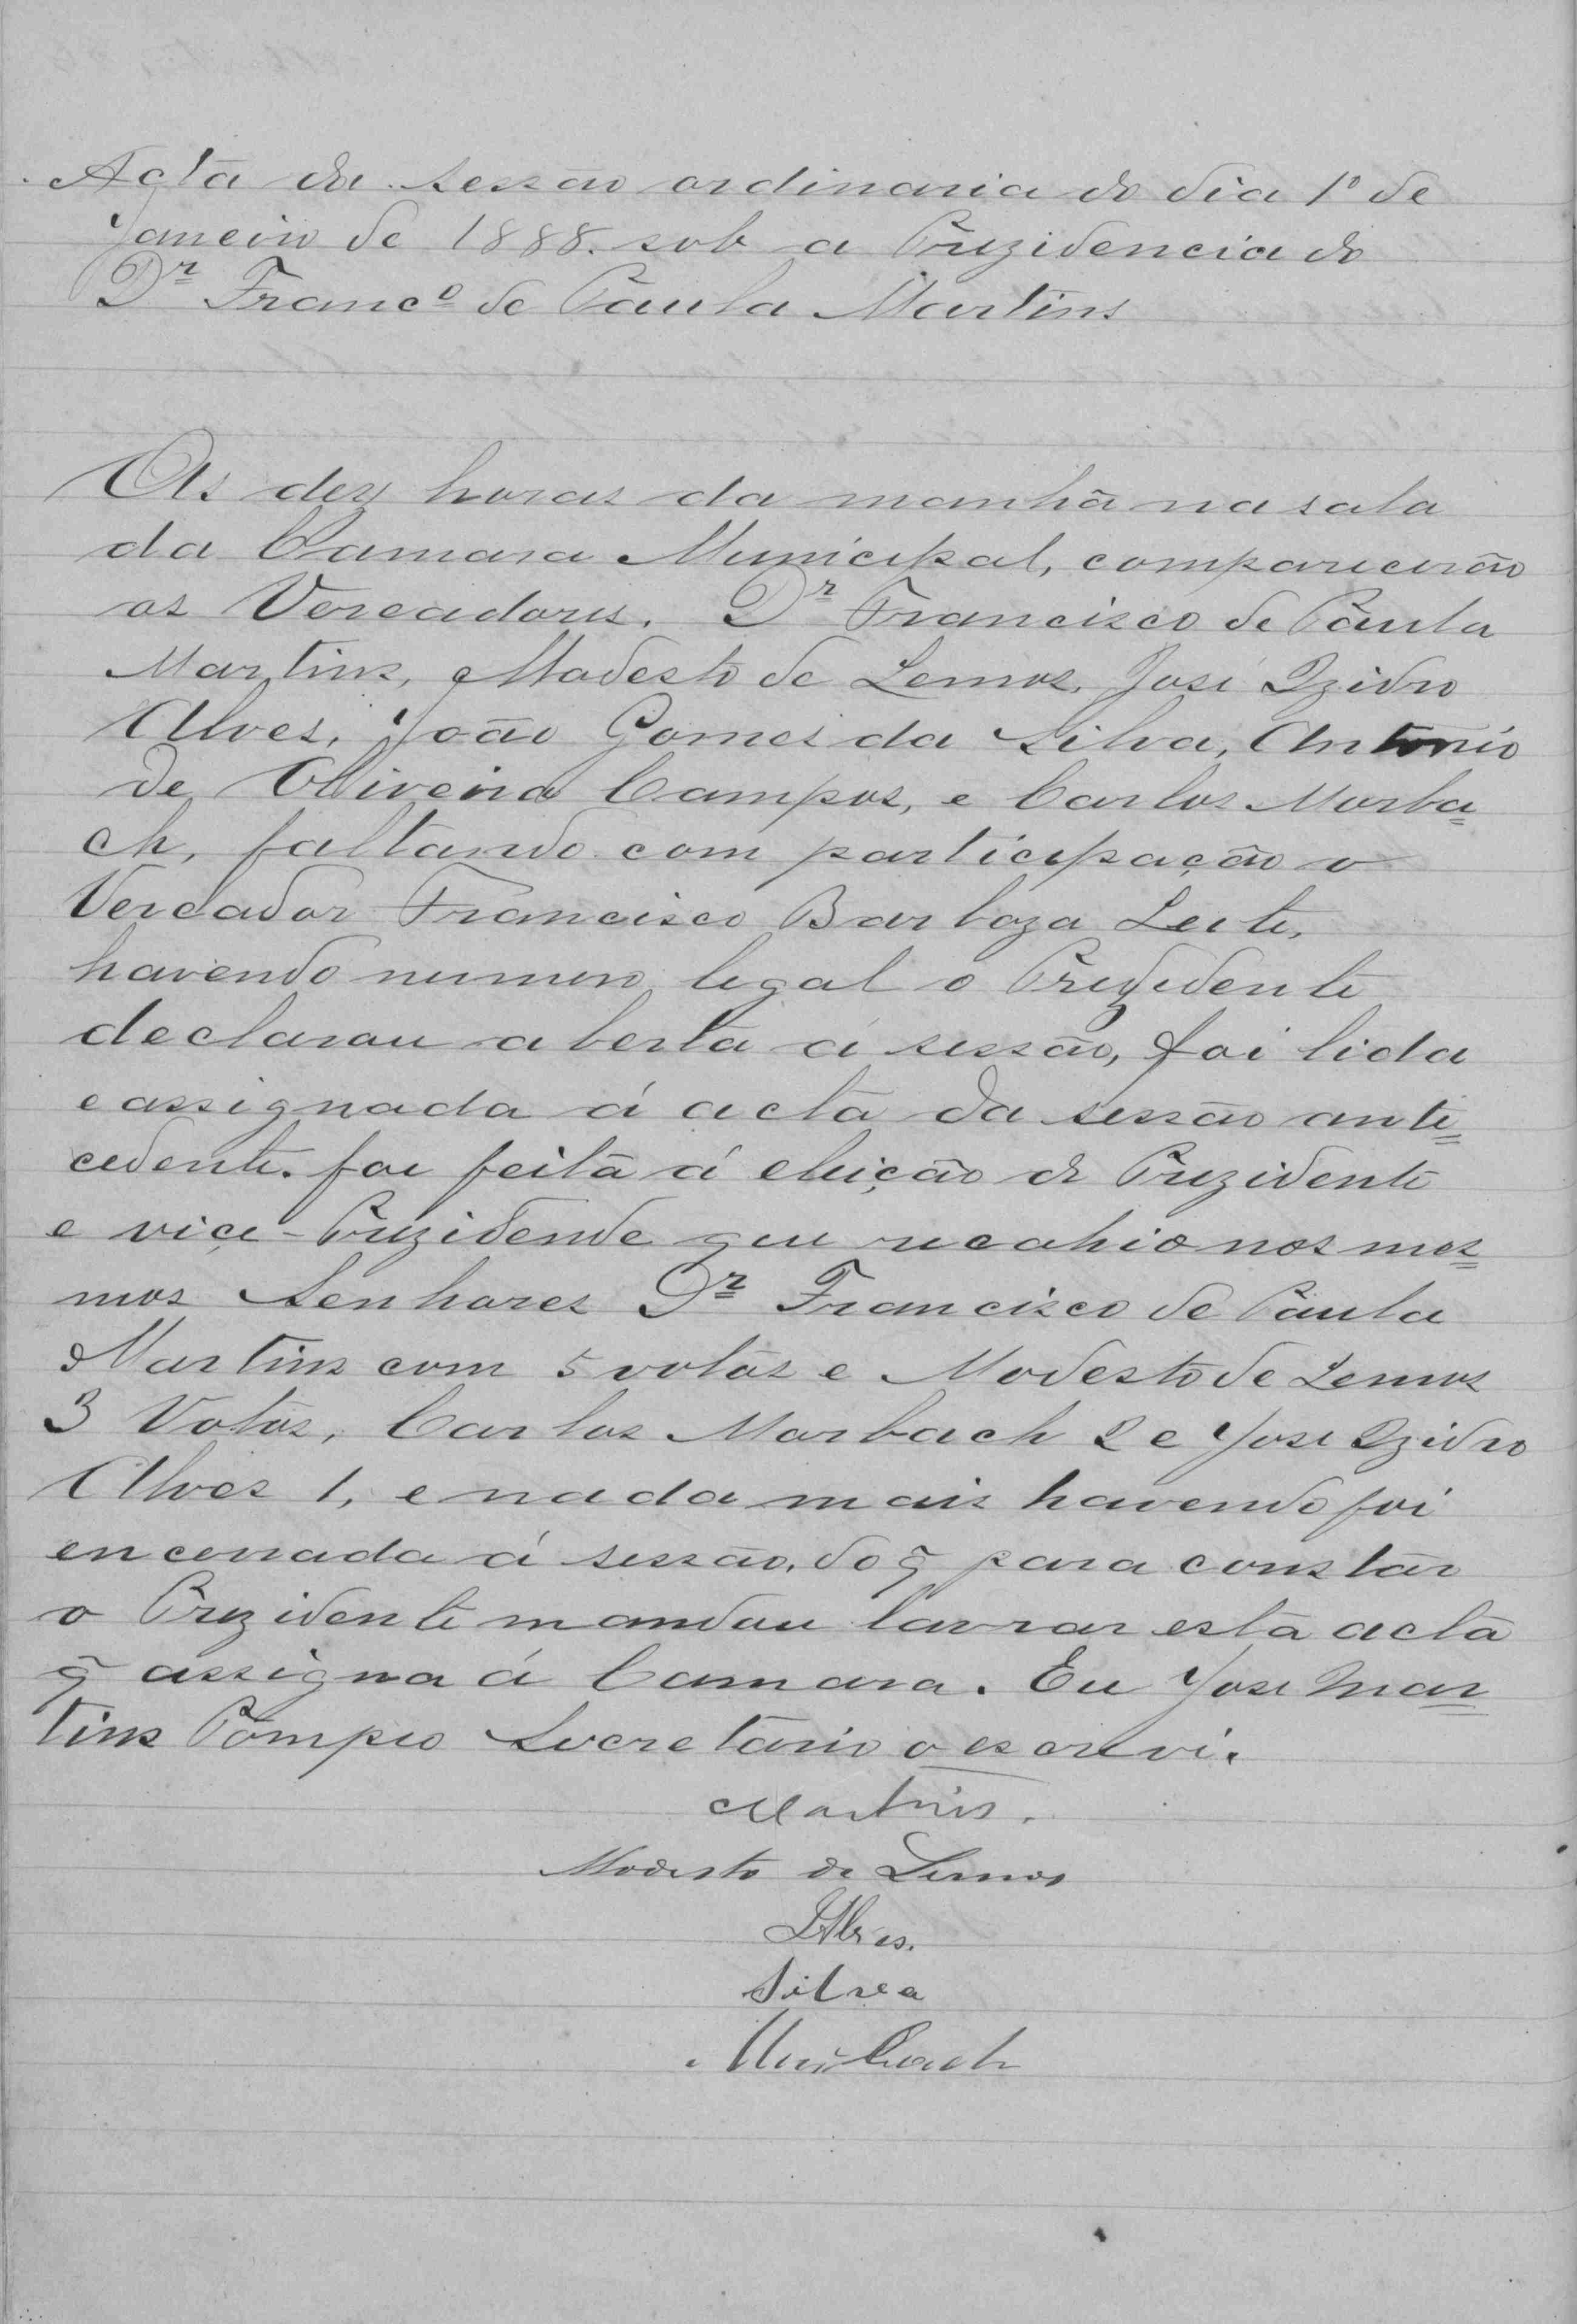 Acta da sessão ordinaria do dia 1º de
Janeiro de 1888. sob a Prezidencia do
Dr Francº de Paula Martins
As dez horas da manhã na sala
da Camara Municipal, comparecerão
os Vereadores. Dr Francisco de Paula
Martins, Modesto de Lemos, José Izidro
Alves, João Gomes da Silva, Antonio
de Oliveira Campos, e Carlos Marba=
ch, faltando com participação o
Vereador Francisco Barboza Leite,
havendo numero legal o Prezidente
declarou aberta á sessão, foi lida
e assignada á acta da sessão ante=
cedente. foi feita á eleição de Prezidente
e viçe-Prezidende que recahio nos mes=
mos Senhores Dr Francisco de Paula
Martins com 5 votos e Modesto de Lemos
3 Votos, Carlos Marbach 2 e Jose Izidro
Alves 1, e nada mais havendo foi
encerrada á sessão, do q̃ para constar
o Prezidente mandou lavrar esta acta
q̃ assigna á Camara. Eu Jose Mar=
tins Pompeo Secretario o escrevi.
Martins.
Modesto de Lemos
Alves.
Silva
Marbach